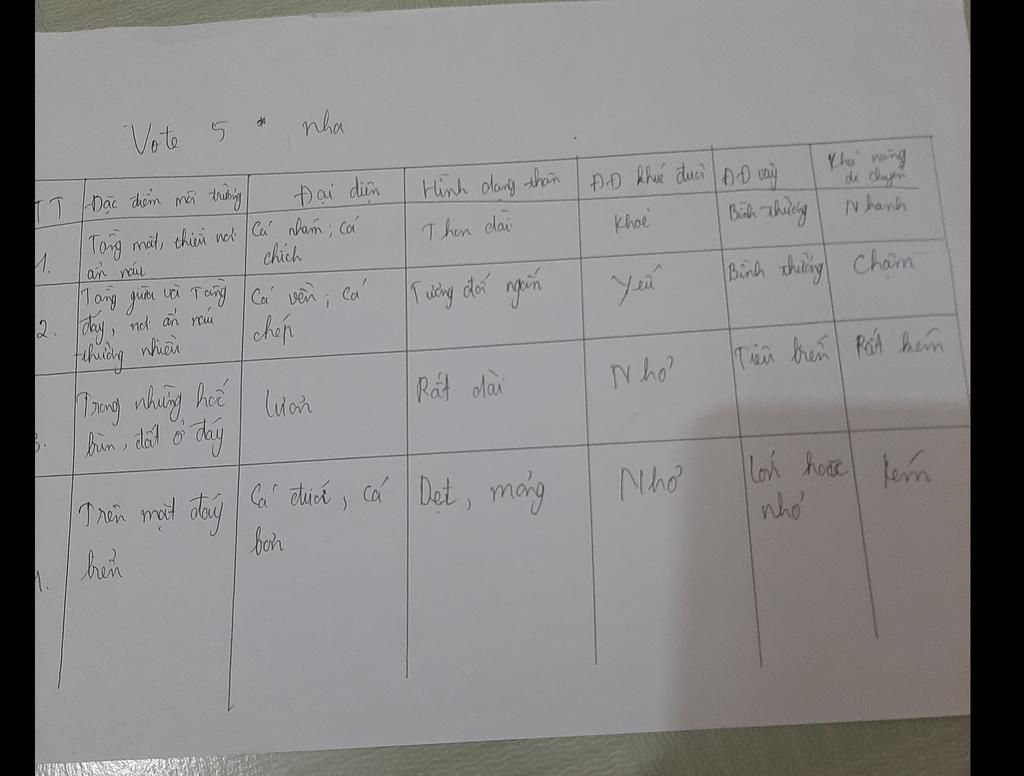 Vote 5 * nha
TT
Đặc điểm môi trường
Đại diện
Hình dạng thân
ĐĐ khúc đuôi
ĐĐ vây
Khả năng
di chuyển
1.
Tầng mặt, thiếu nơi
ẩn náu
Cá nhám; cá
chích
Thon dài
Khoẻ
Bình thường
Nhanh
2.
Tầng giữa và Tầng
đáy, nơi ẩn náu
thường nhiều
Cá vền; cá
chép
Tương đối ngắn
Yếu
Bình thường
Chậm
3.
Trong những hốc
bùn, đất ở đáy
Lươn
Rất dài
Nhỏ
Tiêu biến
Rất kém
Trên mặt đáy
biển
Cá đuối, cá
bơn
Dẹt, mỏng
Nhỏ
Lớn hoặc
nhỏ
kém